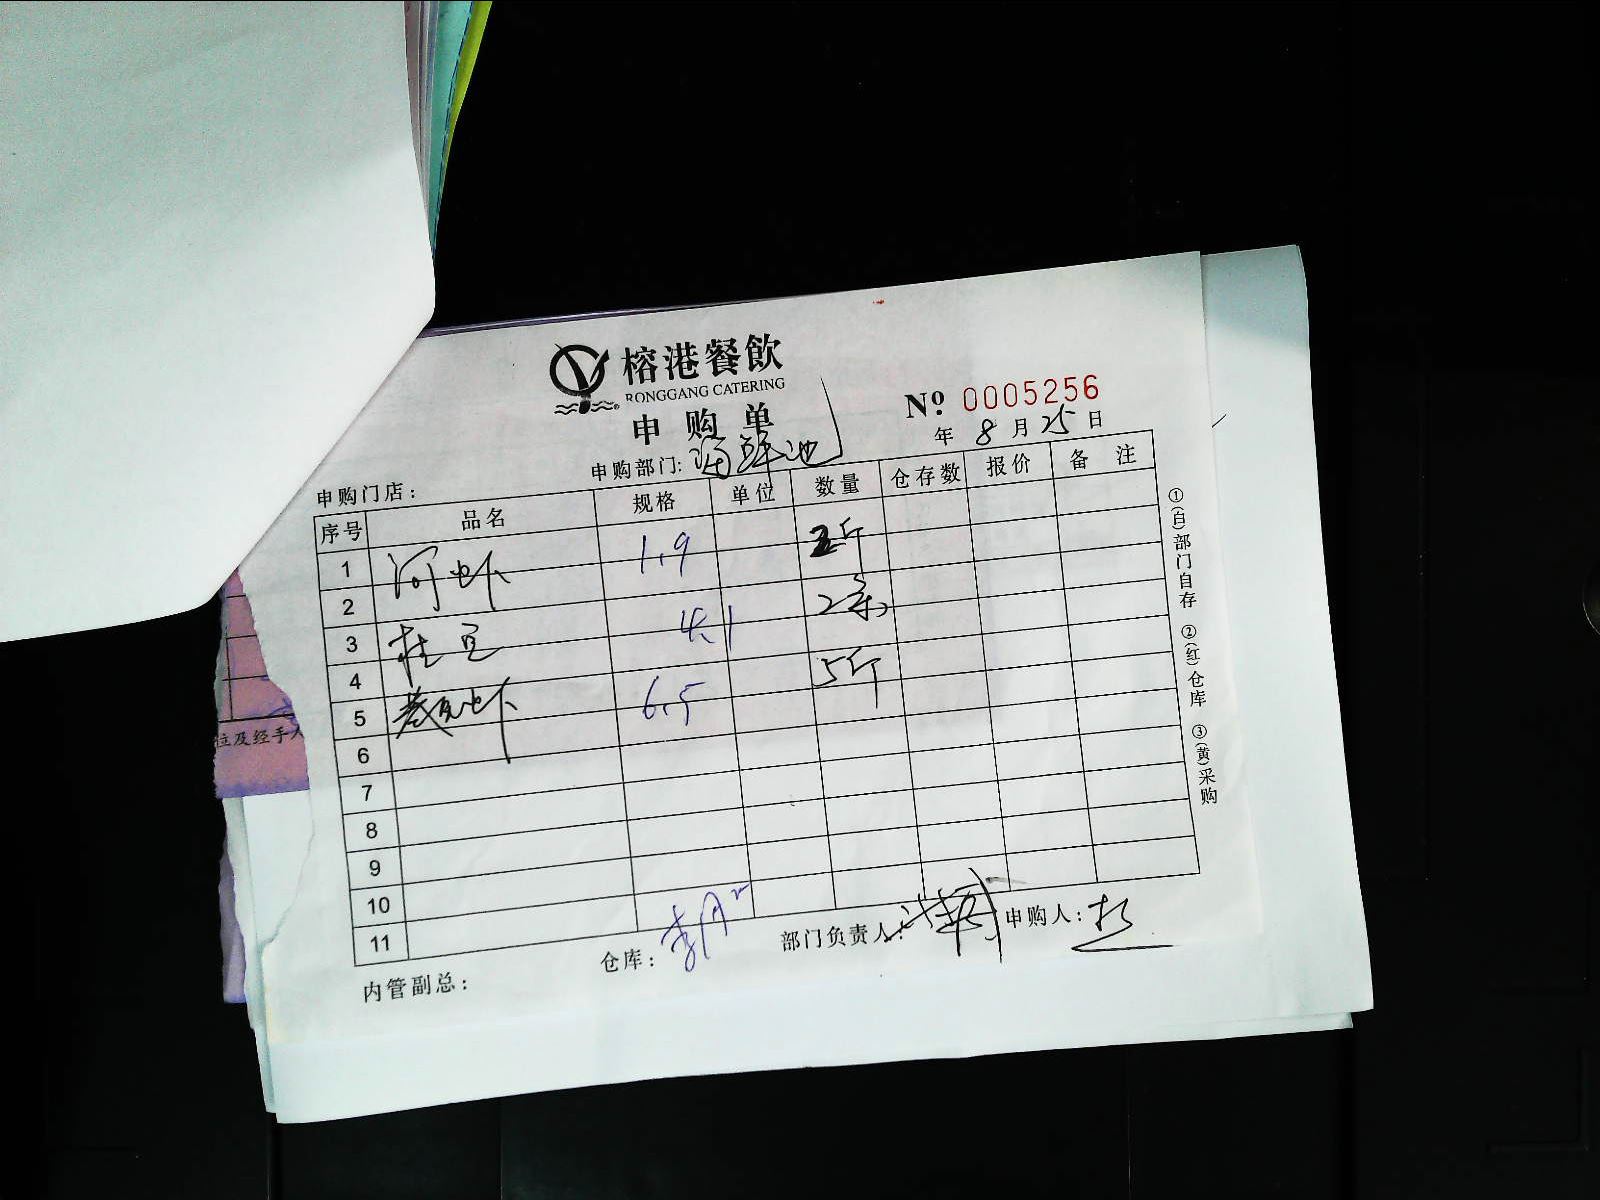 榕港餐飲
RONGGANG CATERING
申购单
№ 0005256
年 8 月 25 日
申购门店： 申购部门: 海鲜池
序号 品名 规格 单位 数量 仓存数 报价 备注
1 河虾 1.9 5斤
2
3 桂 4.1 2条
4
5 虾 6.5 5斤
6
7
8
9
10
11
内管副总： 仓库： 部门负责人： 申购人：
①(白)部门自存 ②(红)仓库 ③(黄)采购
位及经手人